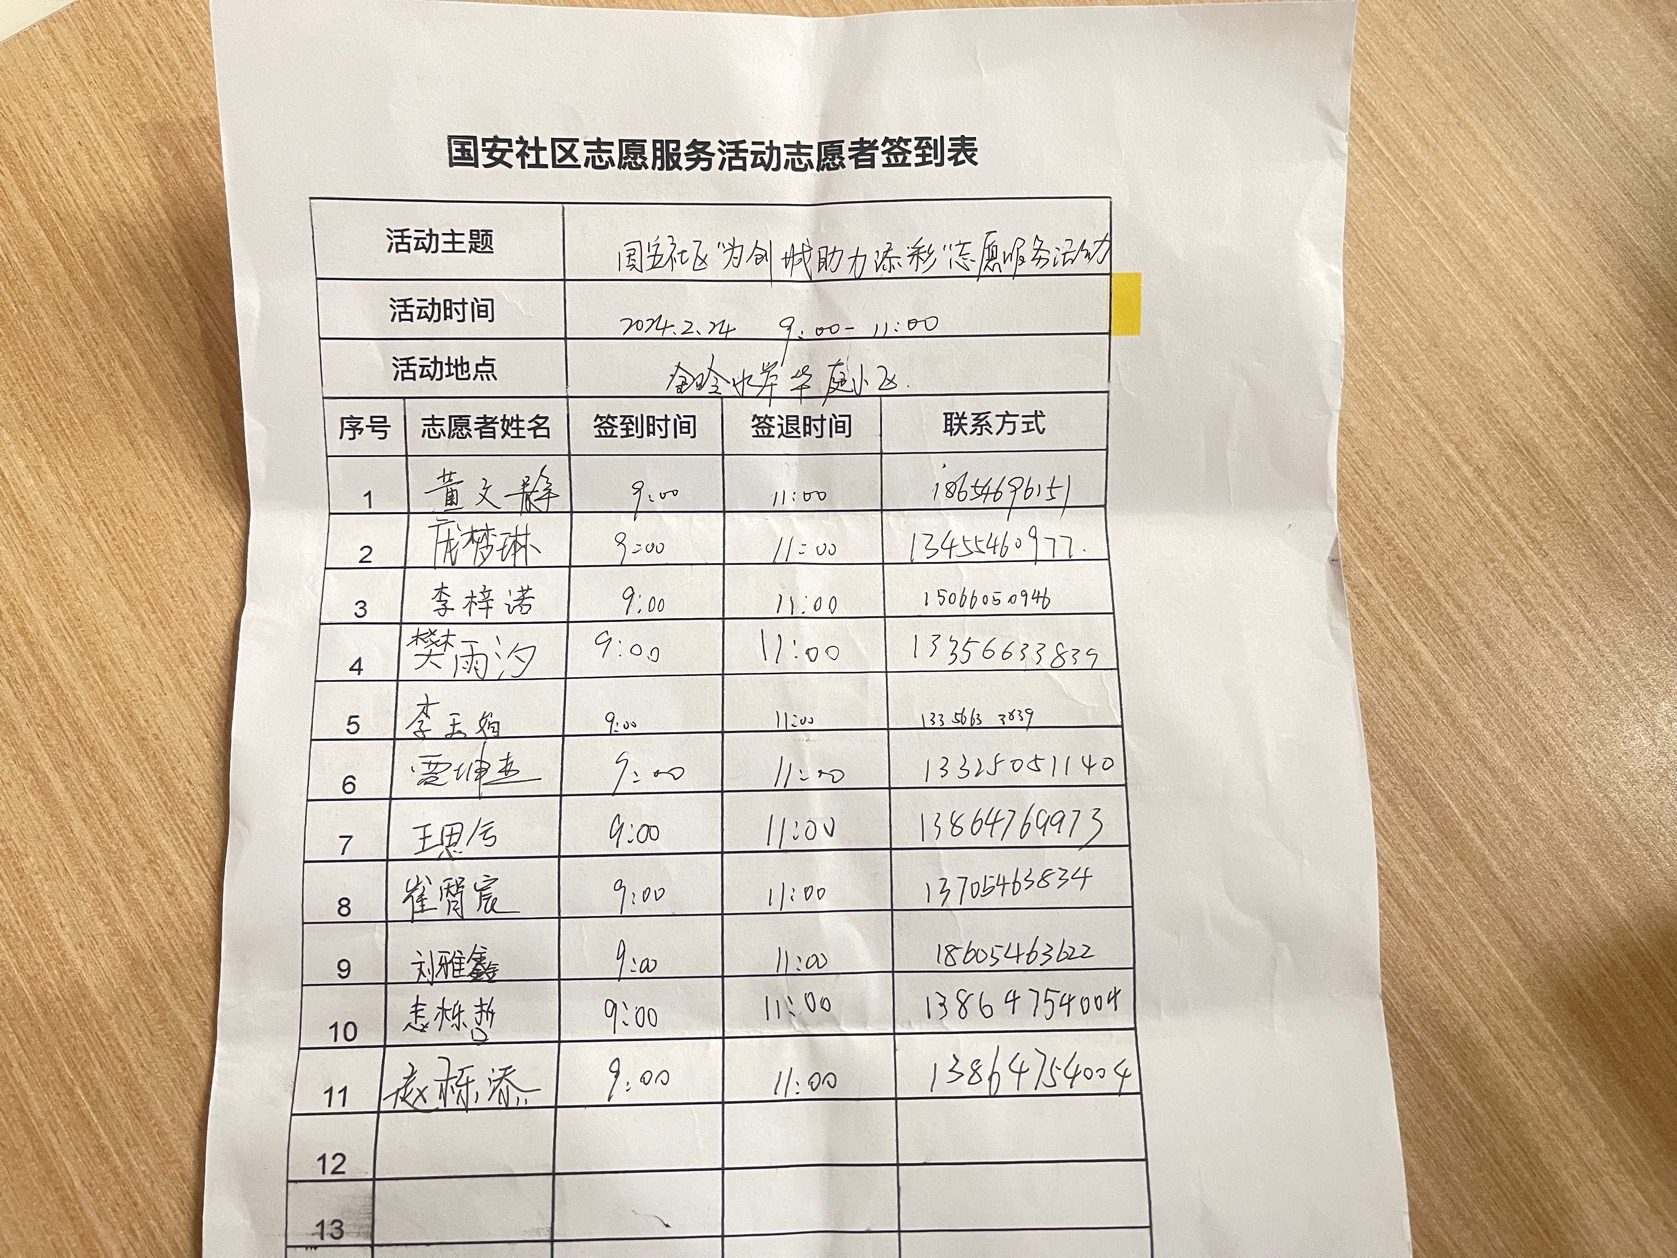 国安社区志愿服务活动志愿者签到表
活动主题 国安社区“为创城助力添彩”志愿服务活动
活动时间 2024.2.24 9:00-11:00
活动地点 金晗水岸华庭小区.
序号 志愿者姓名 签到时间 签退时间 联系方式
1 董文静 9:00 11:00 18654696151
2 庞梦琳 9:00 11:00 13455460977.
3 李梓诺 9:00 11:00 15066050946
4 樊雨汐 9:00 11:00 13356633839
5 李玉娟 9:00 11:00 13356633839
6 贾坤杰 9:00 11:00 13325051140
7 王思兮 9:00 11:00 13864769973
8 崔霄宸 9:00 11:00 13705463834
9 刘雅鑫 9:00 11:00 18605463622
10 栎哲 9:00 11:00 13864754004
11 赵栎添 9:00 11:00 13864754004
12
13